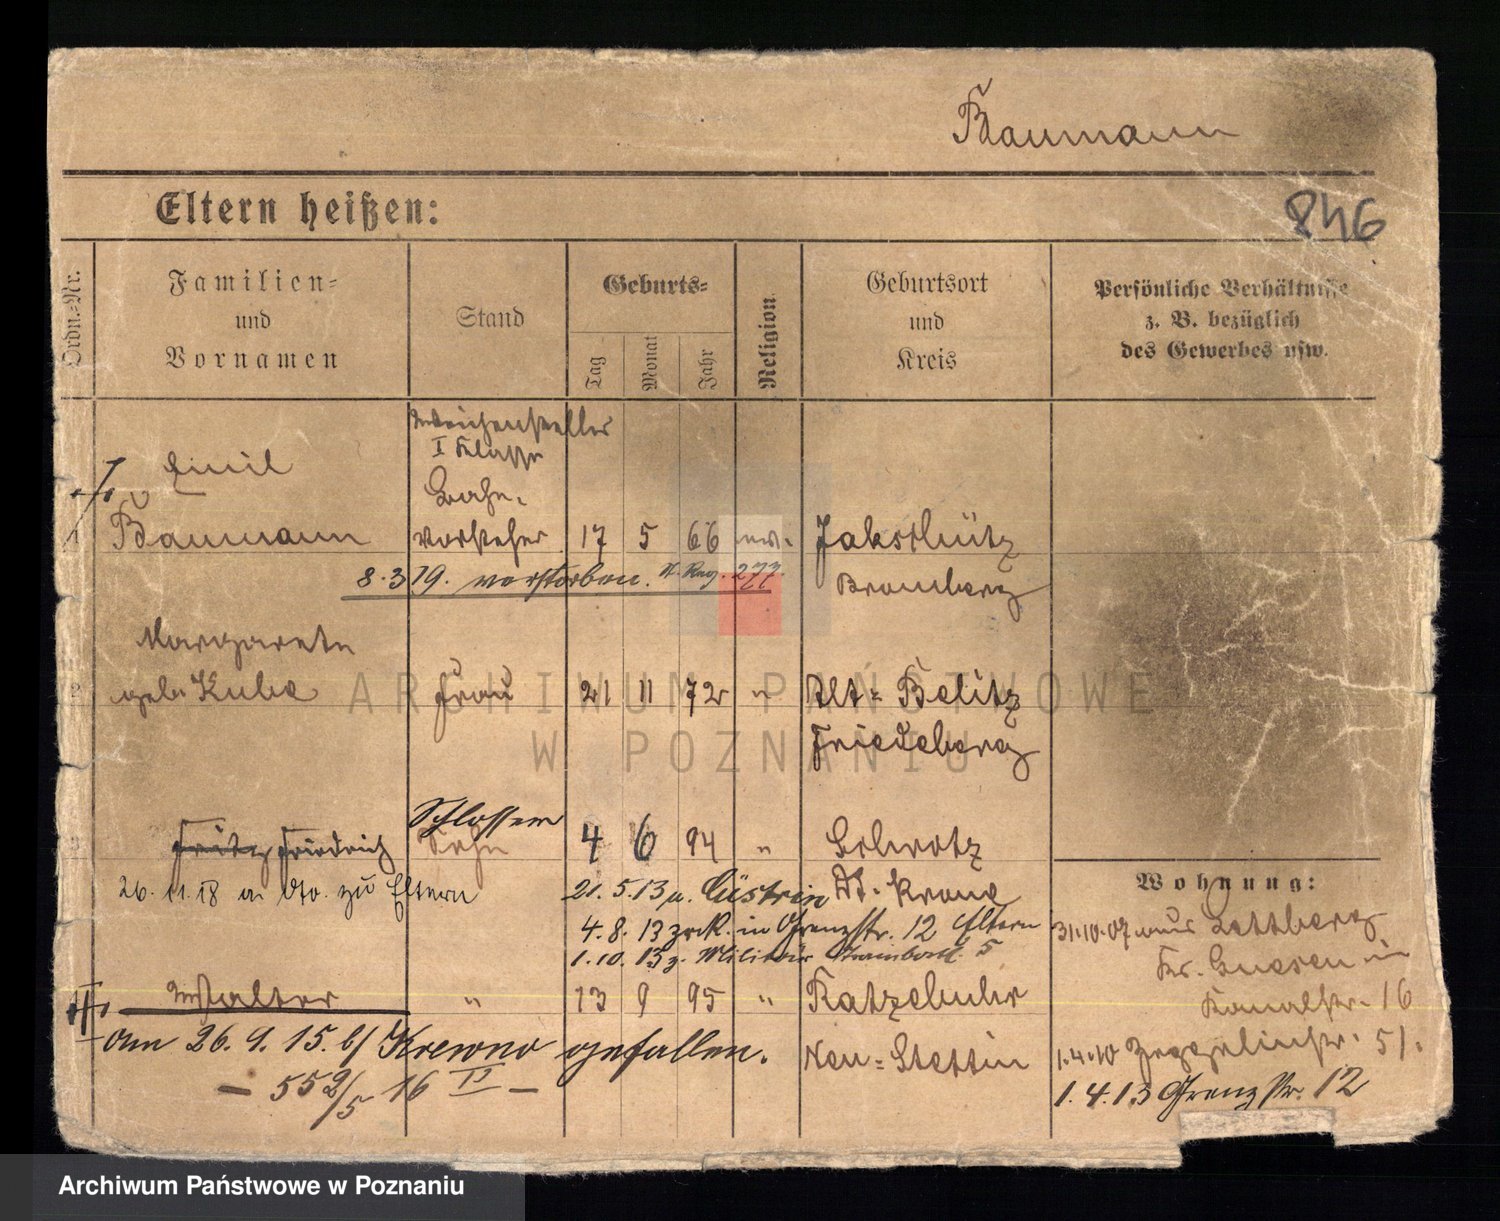 Baumann
846
Eltern heißen:
Ordn.-Nr.
Familien-
und
Vornamen
Stand
Geburts-
Tag
Monat
Jahr
Religion.
Geburtsort
und
Kreis
Persönliche Verhältnisse
z. B. bezüglich
des Gewerbes usw.
Weichensteller
I Klasse
Emil
Bahn-
Baumann vorsteher 17 5 66 ew. Jakobshütz
8.3 19. verstorben. 277. Bromberg
Margarete
geb. Kube Frau 21 11 72 " Alt-Belitz
Friedeberg
Schlosser
Fritz Friedrich Sohn 4 6 94 "
26.11.18 zu Eltern 21.5.13 n. Cüstrin Dt. Krone
4.8.13 zck. in Grenzstr. 12 Eltern
1.10.13 z. Militär 5
Walter " 13 9 95 " Ratzebuhr
Am 26.9.15. b/ Krewno gefallen. Neu-Stettin
— 552/5 16 II —
Wohnung:
31.10.07 aus
Kr. Gnesen in
Kanalstr. 16
1.4.10 Zeppelinstr. 51.
1.4.13 Grenzstr. 12
ARCHIWUM PAŃSTWOWE
W POZNANIU
Archiwum Państwowe w Poznaniu